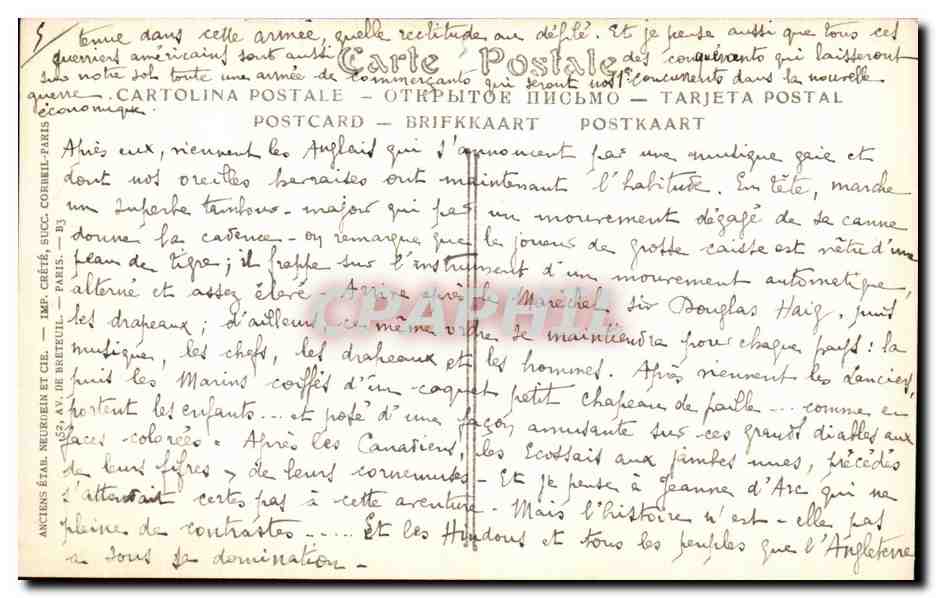 5/ tenue dans cette armée, quelle rectitude au défilé. Et je pense aussi que tous ces
guerriers américains sont aussi des conquérants qui laisseront
Carte Postale
sur notre sol toute une armée de commerçants qui seront nos concurrents dans la nouvelle
guerre
économique.
CARTOLINA POSTALE — ОТКРЫТОЕ ПИСЬМО — TARJETA POSTAL
POSTCARD — BRIFKKAART POSTKAART
Après eux, viennent les Anglais qui s'annoncent par une musique gaie et
dont nos oreilles havraises ont maintenant l'habitude. En tête, marche
un superbe tambour-major qui par un mouvement dégagé de sa canne
donne la cadence - on remarque que le joueur de grosse caisse est vêtu d'une
peau de tigre; il frappe sur l'instrument d'un mouvement automatique,
alterné et assez élevé. Arrive après le Maréchal sir Douglas Haig, puis
les drapeaux; d'ailleurs ce même ordre se maintiendra pour chaque pays: la
musique, les chefs, les drapeaux et les hommes. Après viennent les Lanciers,
puis les Marins coiffés d'un coquet petit chapeau de paille ... comme en
portent les enfants ... et posé d'une façon amusante sur ces grands diables aux
faces colorées. Après les Canadiens, les Ecossais aux jambes nues, précédés
de leurs fifres, de leurs cornemuses - Et je pense à Jeanne d'Arc qui ne
s'attendait certes pas à cette aventure - Mais l'histoire n'est-elle pas
pleine de contrastes ..... Et les Hindous et tous les peuples que l'Angleterre
a sous sa domination -
ANCIENS ÉTAB. NEURDEIN ET CIE. — IMP. CRÉTÉ, SUCC. CORBEIL-PARIS
162, AV. DE BRETEUIL. — PARIS. — B3
CPAPHIL